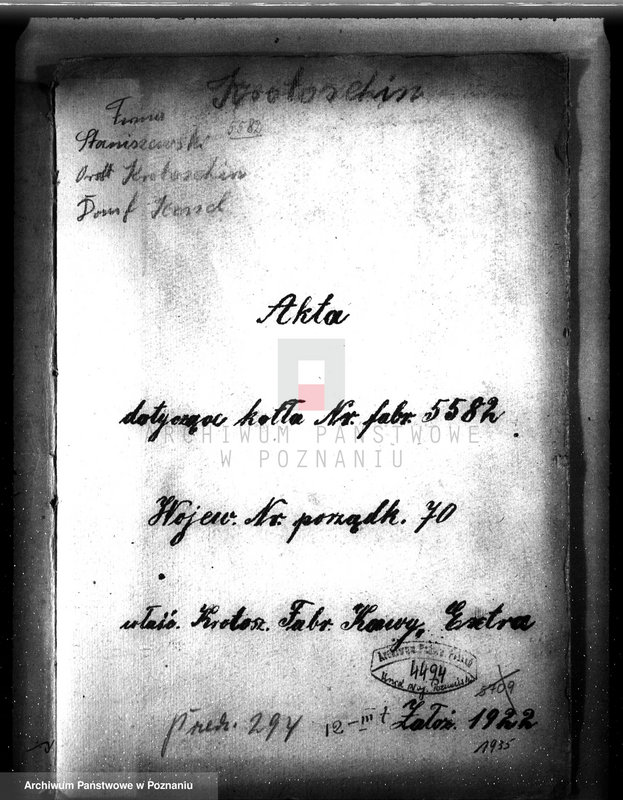 Krotoschin
Firma 5582
Staniszewski
Krotoschin
Dampf Kessel
Akta
dotyczące kotła Nr. fabr. 5582.
ARCHIWUM PAŃSTWOWE
W POZNANIU
Wojew. Nr. porządk. 70
właść. Krotosz. Fabr. Kawy, Extra
4494
8709
294 12-III t Założ. 1922
1935
Archiwum Państwowe w Poznaniu